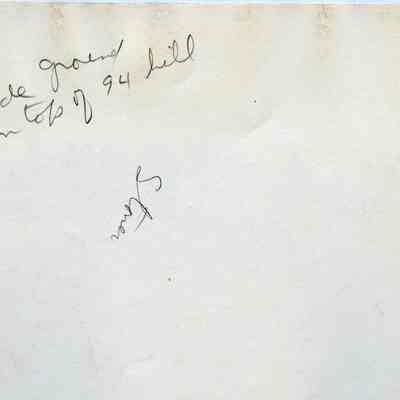 de ground
n top of 94 hill
Stoner